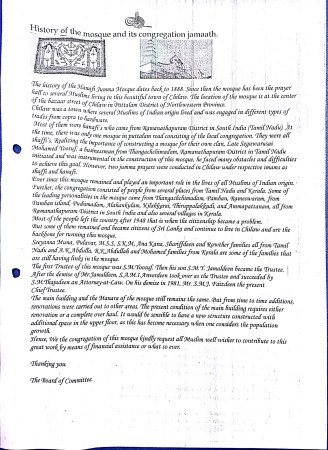 History of the mosque and its congregation jamaath.
The history of the Hanafi Jumma Mosque dates back to 1888. Since then the mosque has been the prayer
hall to several Muslims living in this beautiful town of Chilaw. The location of the mosque is at the center
of the bazaar street of Chilaw in Puttalam District of Northwestern Province.
Chilaw was a town where several Muslims of Indian origin lived and was engaged in different types of
trades from copra to hardware.
Most of them were hanafi's who came from Ramanathapuram District in South India (Tamil Nadu). At
the time, there was only one mosque in puttalam road consisting of the local congregation. They were all
shaffi's. Realizing the importance of constructing a mosque for their own clan, Late Segawarusai
Mohamed Yoosuf, a businessman from Thangachimadam, Ramanathapuram District in Tamil Nadu
initiated and was instrumental in the construction of this mosque, he faced many obstacles and difficulties
to achieve this goal. However, two jumma prayers were conducted in Chilaw under respective imams as
shaffi and hanafi.
Ever since this mosque remained and played an important role in the lives of all Muslims of Indian origin.
Further, the congregation consisted of people from several places from Tamil Nadu and Kerala. Some of
the leading personalities in the mosque came from Thangachimadam, Pamban, Rameswaram, from
Pamban island, Pudumadam, Alahankulam, Kilakkarai, Thiruppalakkudi, and Ammapattanam, all from
Ramanathapuram District in South India and also several villages in Kerala.
Most of the people left the country after 1948 that is when the citizenship became a problem.
But some of them remained and became citizens of Sri Lanka and continue to live in Chilaw and are the
backbone for running this mosque.
Seeyanna Muna, Pulavar, M.S.S, S.K.M, Ana Kana, Shariffdeen and Rawther families all from Tamil
Nadu and A.K.Abdulla, N.K.Abdullah and Mohamed families from Kerala are some of the families that
are still having links in the mosque.
The first Trustee of this mosque was S.M.Yoosuf. Then his son S.M.Y. Jamaldeen became the Trustee.
After the demise of Mr.Jamaldeen, S.A.M.S.Ameerdeen took over as the Trustee and succeeded by
S.M.Thajudeen as Attorney-at-Law. On his demise in 1981, Mr. S.M.J. Faizdeen the present
Chief Trustee.
The main building and the Manara of the mosque still remains the same. But from time to time additions,
renovations were carried out to other areas. The present condition of the main building requires either
renovation or a complete over haul. It would be sensible to have a new structure constructed with
additional space in the upper floor, as this has become necessary when one considers the population
growth.
Hence, We the congregation of this mosque kindly request all Muslim well wisher to contribute to this
great work by means of financial assistance or what so ever.
Thanking you.
The Board of Committee.